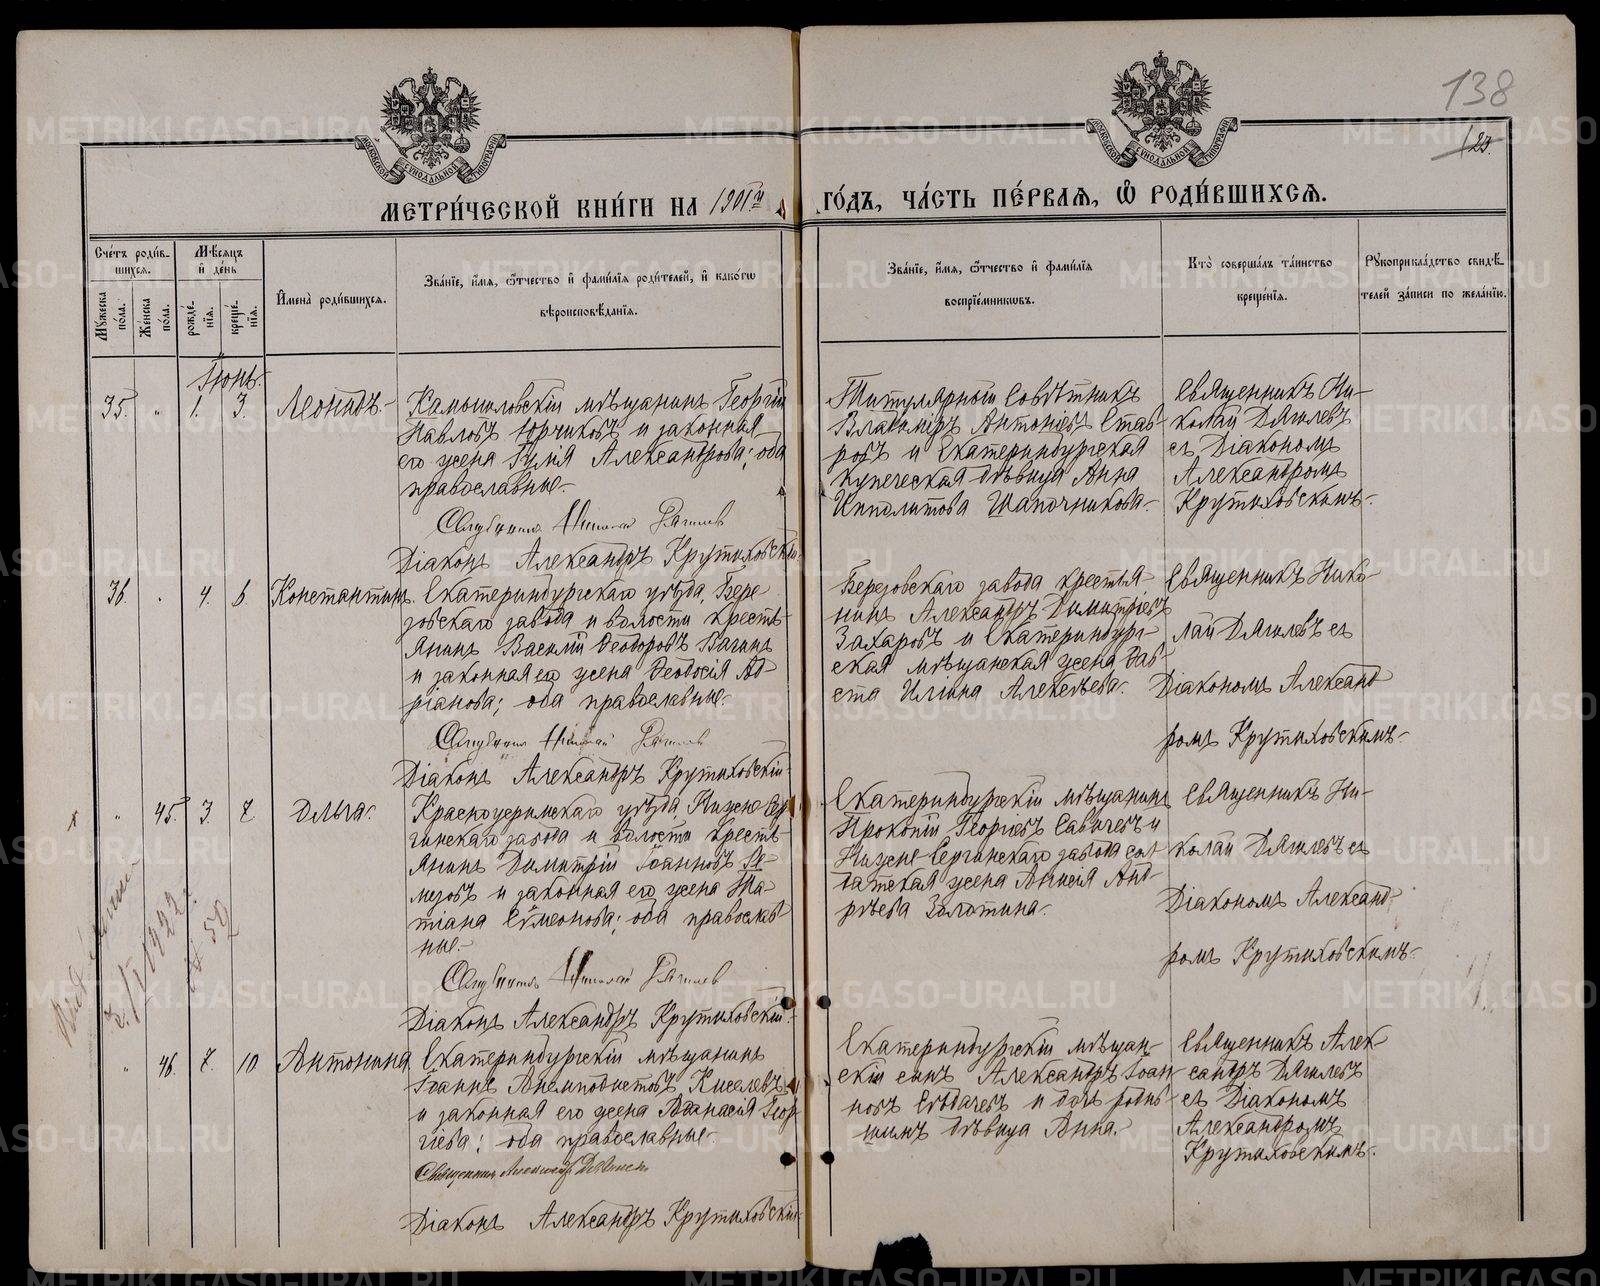 138
123.
МЕТРИ́ЧЕСКОЙ КНИ́ГИ НА 1901й ГО́ДЪ, ЧА́СТЬ ПЕ́РВАЯ, Ѡ҆ РОДИ́ВШИХСЯ.
Сче́тъ роди́в-
шихся.
Мужеска по́ла.
Же́нска по́ла.
Мѣ́сяцъ
и҆ де́нь
рожде́-
нїя.
креще́-
нїя.
И҆мена̀ роди́вшихся.
Зва́нїе, и҆́мя, ѻ҆́тчество и҆ фами́лїя роди́телей, и҆ како́гѡ
вѣроисповѣ́данїя.
Зва́нїе, и҆́мя, ѻ҆́тчество и҆ фами́лїя
воспрїе́мникѡвъ.
Кто̀ соверша́лъ та́инство
креще́нїя.
Рукоприкла́дство свидѣ́-
телей за́писи по жела́нїю.
Іюнь.
35. " 1. 3. Леонидъ.
Камышловскій мѣщанинъ Георгій
Павловъ Юрчиковъ и законная
его жена Гулія Александрова; оба
православные.
Священникъ Николай Дягилев
Діаконъ Александръ Крутиховскій
Титулярный Совѣтникъ
Владиміръ Антоніевъ Став-
ровъ и Екатеринбургская
купеческая дѣвица Анна
Ипполитова Шапочникова.
Священникъ Ни-
колай Дягилевъ
съ Діакономъ
Александромъ
Крутиховскимъ.
36. " 4. 6. Константинъ.
Екатеринбургскаго уѣзда, Бере-
зовскаго завода и волости кресть-
янинъ Василій Ѳеодоровъ Вагинъ
и законная его жена Ѳеодосія Ад-
ріанова; оба православные.
Священникъ Николай Дягилев
Діаконъ Александръ Крутиховскій
Березовскаго завода крестья-
нинъ Александръ Димитріевъ
Захаровъ и Екатеринбург-
ская мѣщанская жена
Иліина Алексѣева.
Священникъ Нико-
лай Дягилевъ съ
Діакономъ Александ-
ромъ Крутиховскимъ.
" 45. 3. 7. Ольга.
Красноуфимскаго уѣзда, Нижне-Сер-
гинскаго завода и волости кресть-
янинъ Димитрій Іоанновъ Ре-
мезовъ и законная его жена Та-
тіана Сѵмеонова; оба православ-
ные.
Священникъ Николай Дягилев
Діаконъ Александръ Крутиховскій.
Екатеринбургскій мѣщанинъ
Прокопій Георгіевъ Савичевъ и
Нижне-Сергинскаго завода сол-
датская жена Анисія Анд-
реева Золотина.
Священникъ Ни-
колай Дягилевъ съ
Діакономъ Александ-
ромъ Крутиховскимъ.
3/I 1922
№ 59
" 46. 7. 10 Антонина
Екатеринбургскій мѣщанинъ
Іоаннъ Анемподистовъ Киселевъ
и законная его жена Аѳанасія Геор-
гіева; оба православные.
Священникъ Александръ Дягилевъ
Діаконъ Александръ Крутиховскій
Екатеринбургскій мѣщан-
скій сынъ Александръ Іоан-
новъ Сѣдачевъ и дочь родив-
шимъ дѣвица Анна.
Священникъ Алек-
сандръ Дягилевъ
съ Діакономъ
Александромъ
Крутиховскимъ.